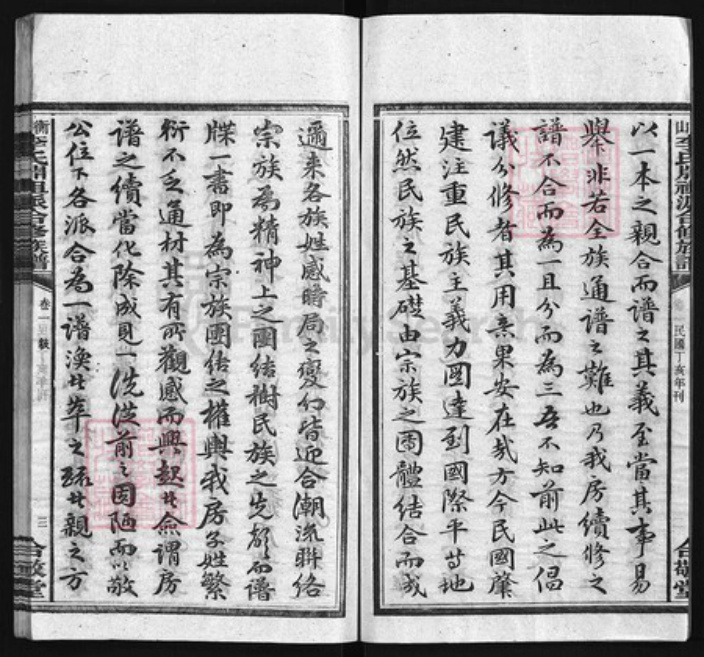 山李氏開祖派合修族譜
卷一
民國丁亥年刊
合敬堂
以一本之親合而譜之其義至當其事易
舉非若全族通譜之難也乃我房續修之
譜不合而為一且分而為三吾不知前此之倡
議分修者其用意果安在哉方今民國肇
建注重民族主義力圖達到國際平等地
位然民族之基礎由宗族之團體結合而成
邇來各族姓感時局之變幻皆迎合潮流聯絡
宗族為精神上之團結樹民族之先聲而譜
牒一書即為宗族團結之權輿我房子姓繁
衍不乏通材其有所觀感而興起者僉謂房
譜之續當化除成見一洗從前之固陋而以敬
公位下各派合為一譜渙者萃之疏者親之方
衡李氏開祖派合修族譜
卷一
三
合敬堂
FamilySearch